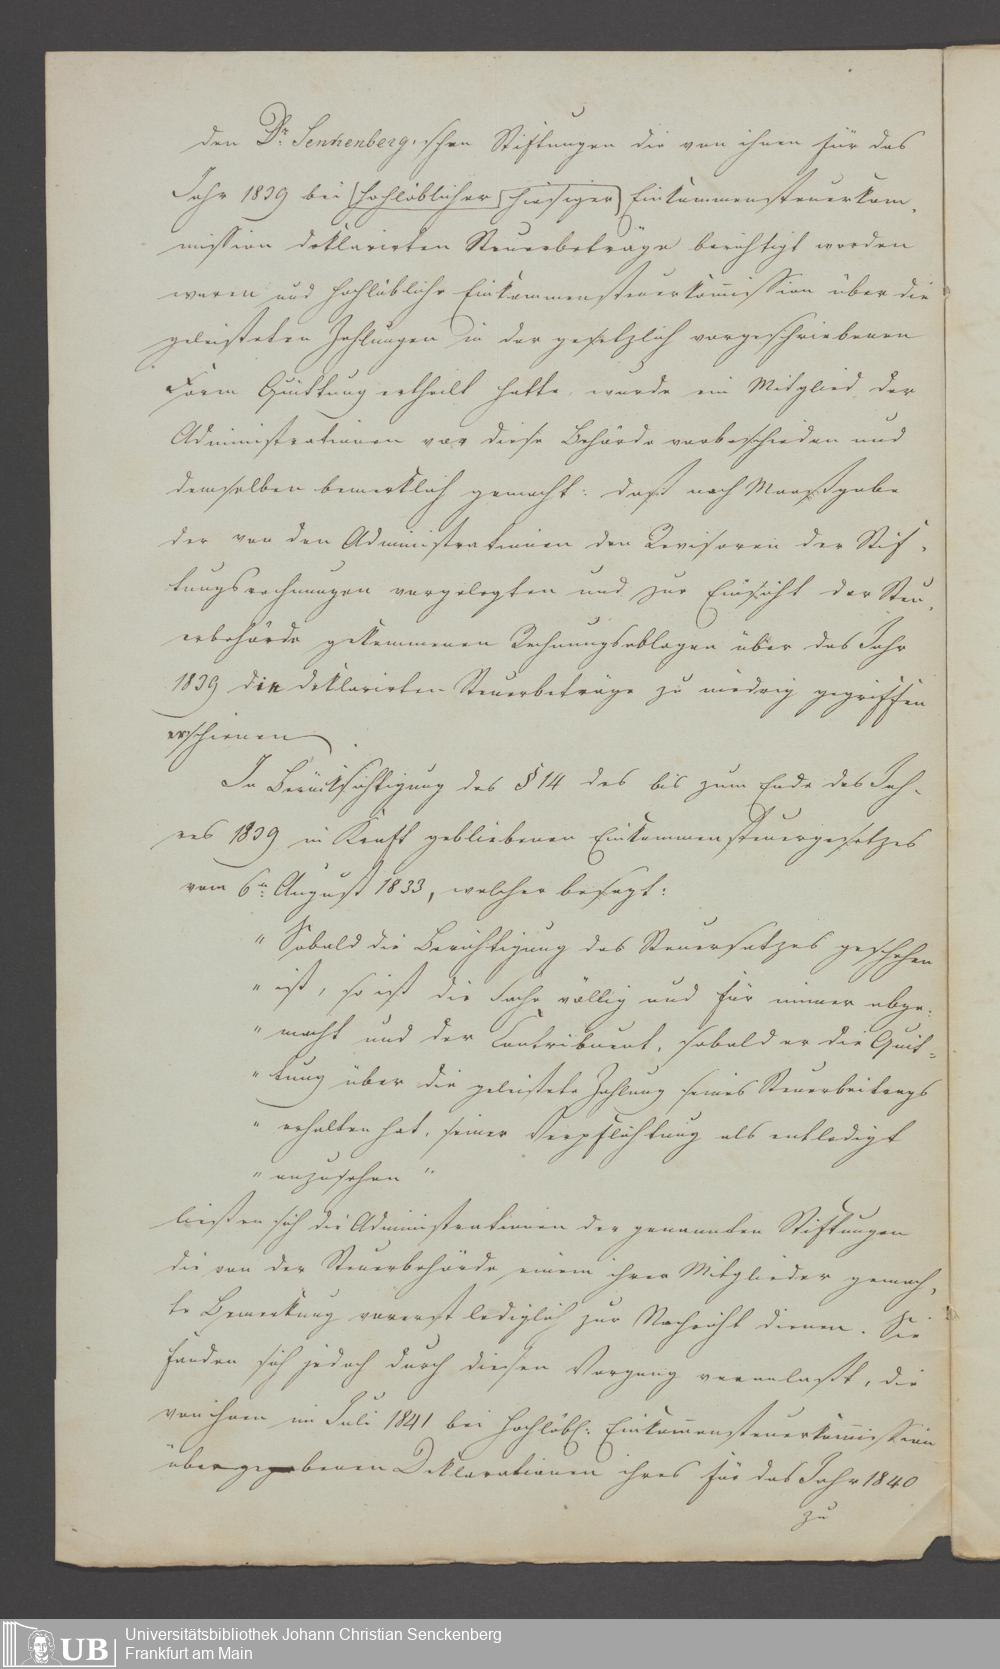 den Dr. Senkenberg'schen Stiftungen die von ihnen für das
Jahr 1839 bei hochlöblicher hiesiger Einkommensteuerkom-
mission deklarirten Steuerbeträge berichtigt worden
waren und hochlöbliche Einkommensteuerkom̄ission über die
geleisteten Zahlungen in der gesetzlich vorgeschriebenen
Form Quittung ertheilt hatte, wurde ein Mitglied der
Administrationen vor diese Behörde vorbeschieden und
demselben bemerklich gemacht: daß nach Maaßgabe
der von den Administrationen den Revisoren der Stif-
tungsrechnungen vorgelegten und zur Einsicht der Steu-
erbehörde gekommenen Rechnungsablagen über das Jahr
1839 die deklarirten Steuerbeträge zu niedrig gegriffen
erschienen.
In Berücksichtigung des § 14 des bis zum Ende des Jah-
res 1839 in Kraft gebliebenen Einkommensteuergesetzes
vom 6n August 1833, welcher besagt:
" Sobald die Berichtigung des Steuersatzes geschehen
" ist, so ist die Sache völlig und für immer abge-
" macht und der Contribuent, sobald er die Quit-
" tung über die geleistete Zahlung seines Steuerbeitrags
" erhalten hat, seiner Verpflichtung als entledigt
" anzusehen "
ließen sich die Administrationen der genannten Stiftungen
die von der Steuerbehörde einem ihrer Mitglieder gemach-
te Bemerkung vorerst lediglich zur Nachricht dienen. Sie
fanden sich jedoch durch diesen Vorgang veranlaßt, die
von ihnen im Juli 1841 bei hochlöbl: Einkom̄ensteuerkom̄ission
übergegebenen Deklarationen ihres für das Jahr 1840
zu
UB Universitätsbibliothek Johann Christian Senckenberg
Frankfurt am Main